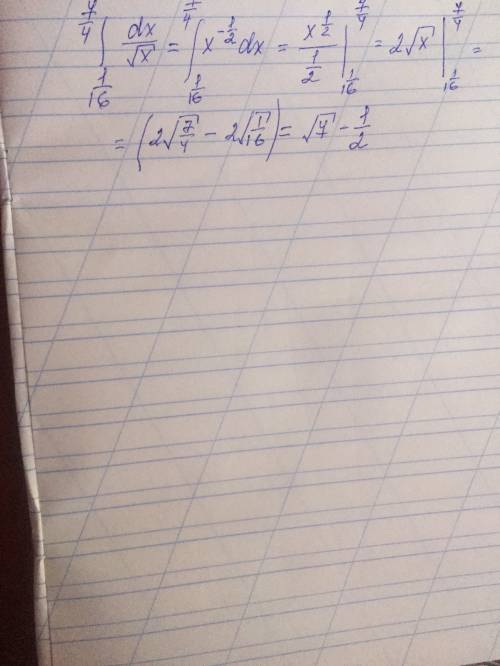 ∫_{1/16}^{7/4} dx/√x = ∫_{1/16}^{7/4} x^{-1/2} dx = x^{1/2}/(1/2) |_{1/16}^{7/4} = 2√x |_{1/16}^{7/4} =
= (2√(7/4) - 2√(1/16)) = √7 - 1/2